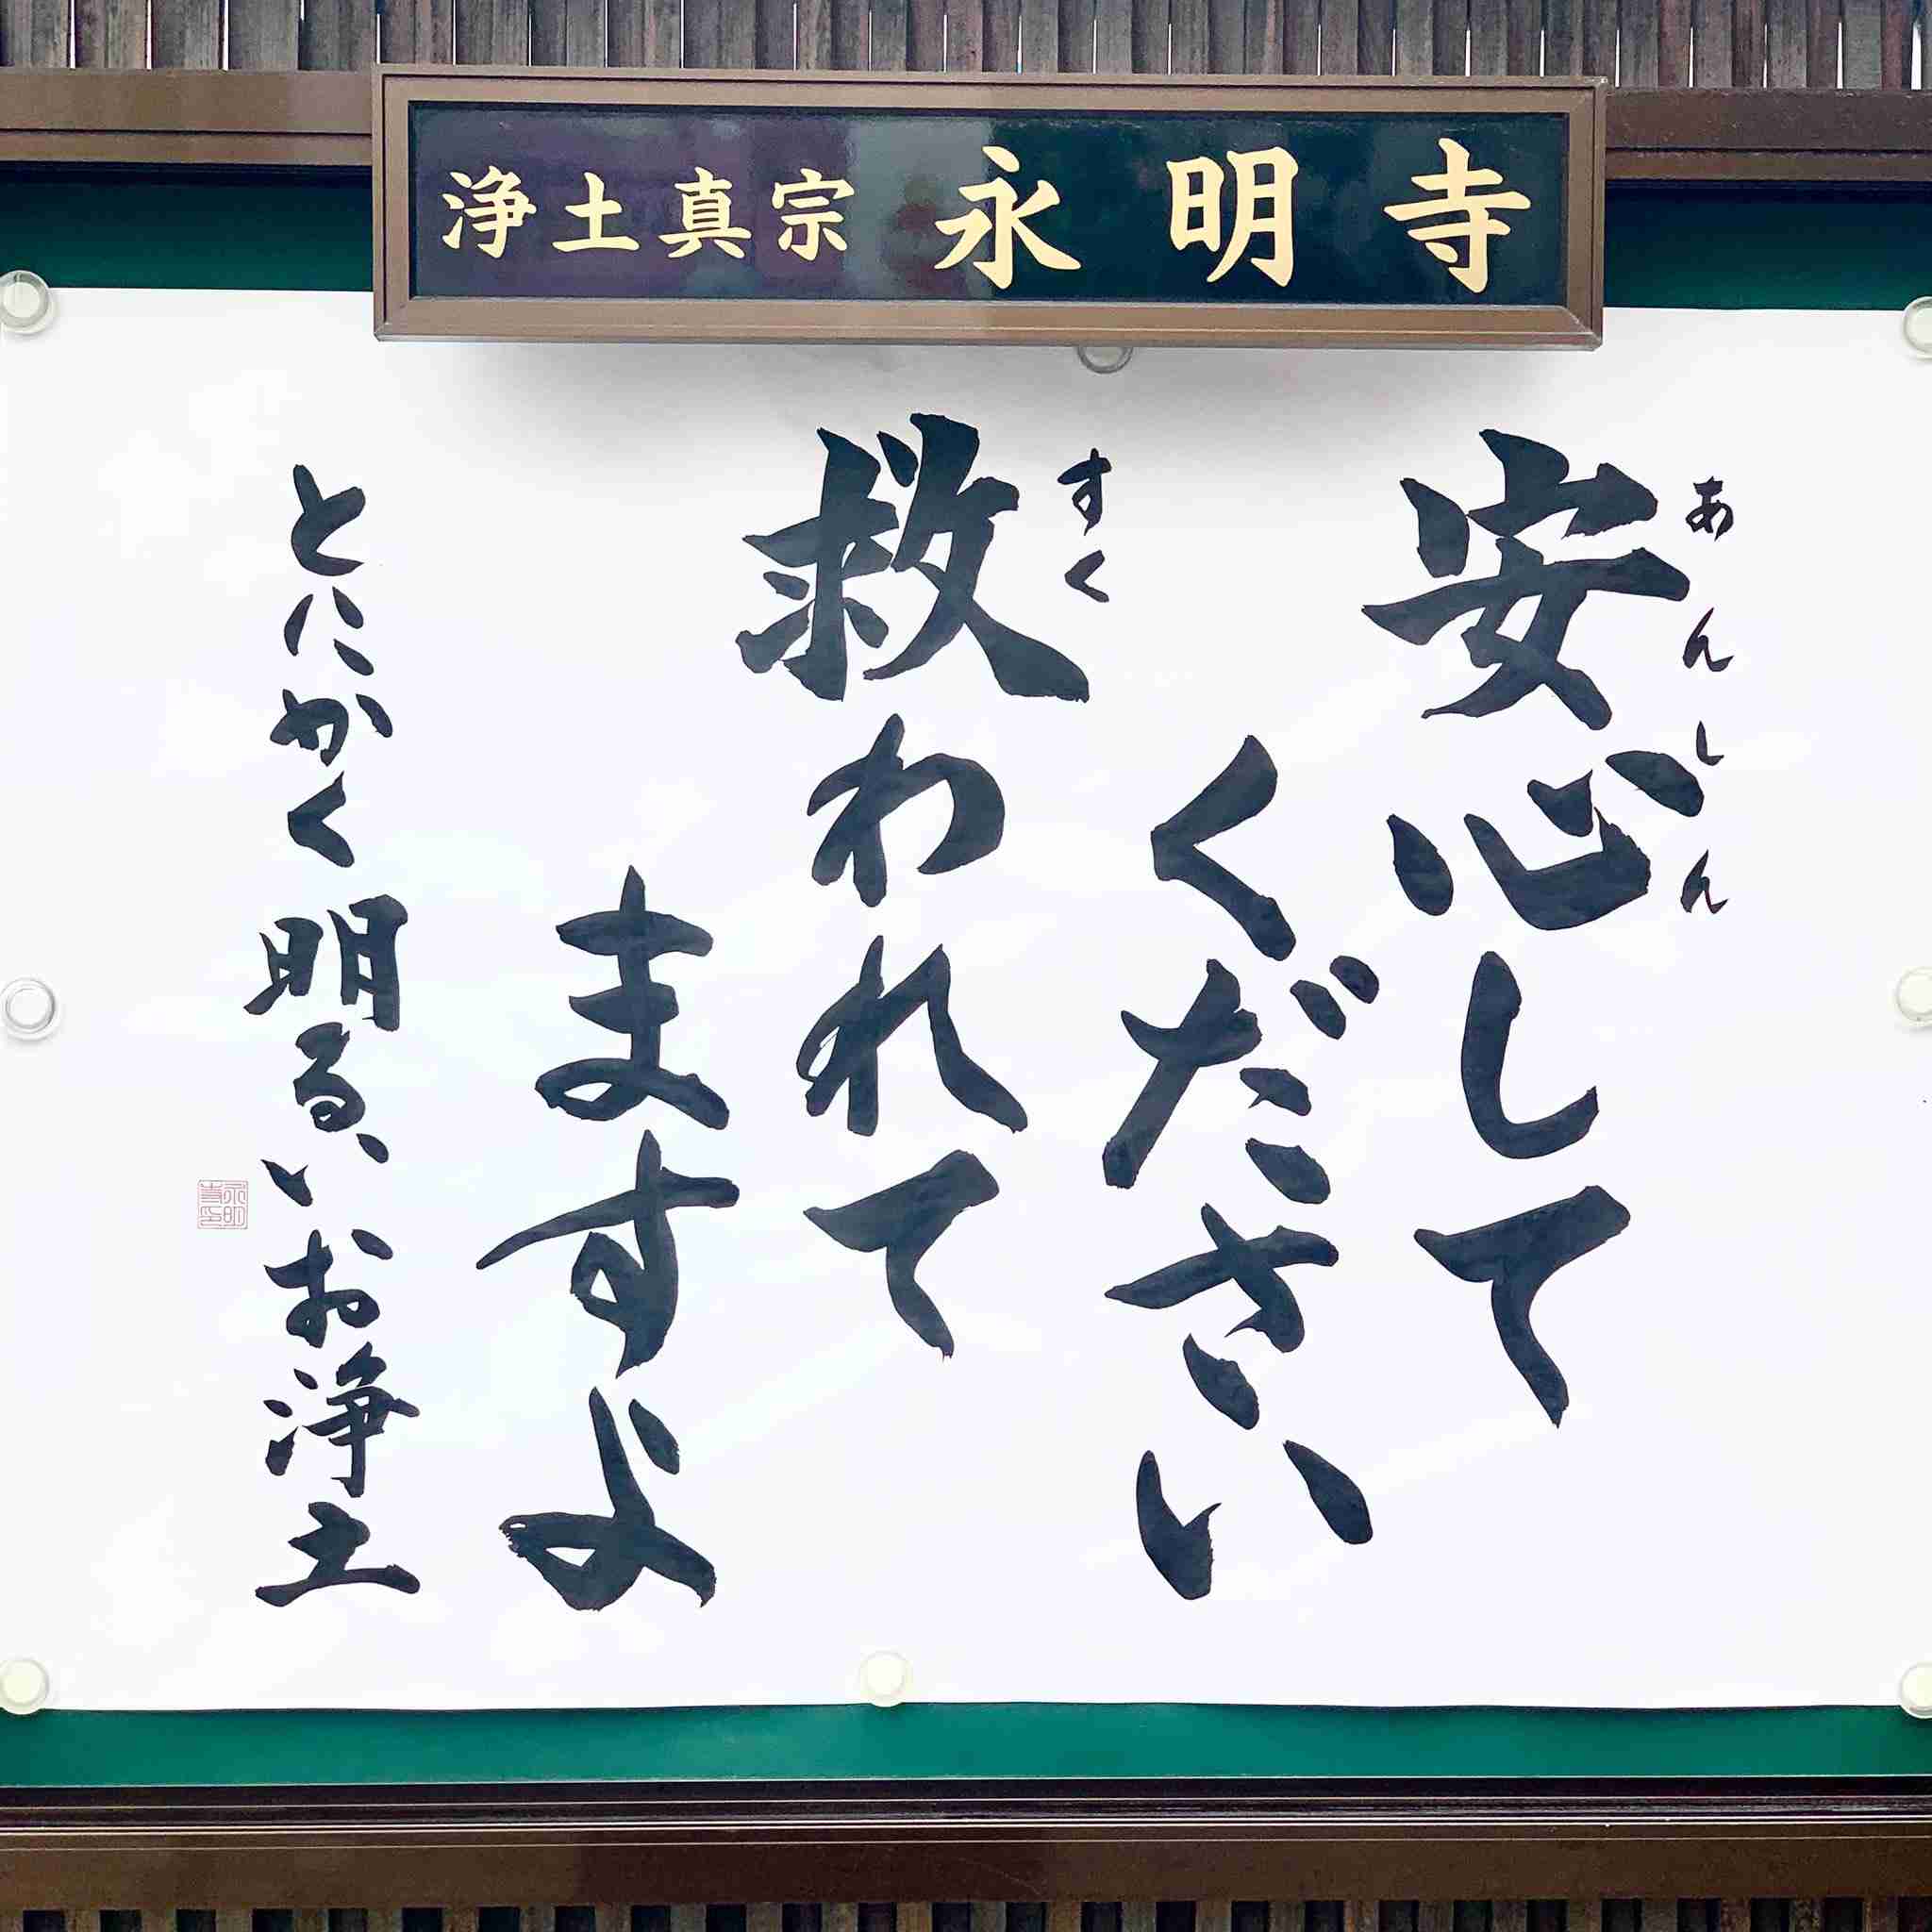 浄土真宗 永明寺
安心して
あんしん
ください
救われて
すく
ますよ
とにかく明るいお浄土
永明寺印